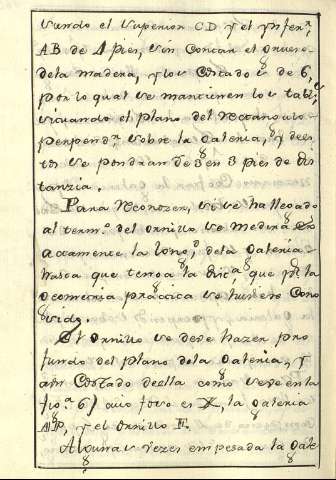 uando el superior CD y el ynfer.r
AB de 4 pies, sin contar el grueso
dela madera, y los Costados de 6,
por lo qual se mantienen los tabl.s
siguiendo el plano del Rectangulo
perpend.r sobre la Galeria, y de es
tos se pondran de 3 en 3 pies de dis
tanzia.
Para Reconozer, si se ha llegado
al term.o del ornillo se medira
la long.d dela Galeria
hasta que tenga la dis.a que p.r la
Geometria practica se huviere Cono
zido.
El Ornillo se deve hazer pro
fundo del plano dela Galeria, y
a un Costado de ella como se ve en la
fig.a 6) cuio foso es X, la galeria
AP, y el Ornillo F.
Algunas vezes empesada la Gale